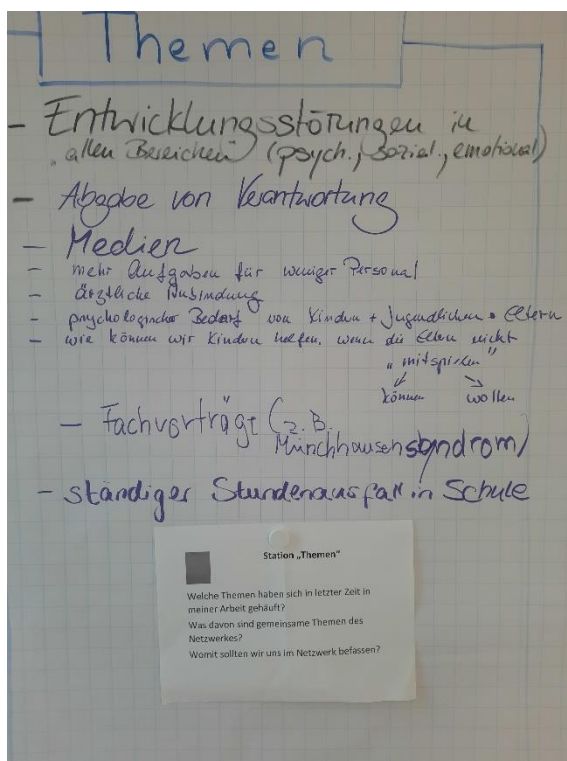 Themen
- Entwicklungsstörungen in
allen Bereichen (psych., sozial., emotional)
- Abgabe von Verantwortung
- Medien
- mehr Aufgaben für weniger Personal
- ärztliche Anbindung
- psychologischer Bedarf von Kindern + Jugendlichen + Eltern
- wie können wir Kindern helfen, wenn die Eltern nicht
"mitspielen"
können wollen
- Fachvorträge (z.B.
Münchhausensyndrom)
- ständiger Stundenausfall in Schule
Station „Themen"
Welche Themen haben sich in letzter Zeit in
meiner Arbeit gehäuft?
Was davon sind gemeinsame Themen des
Netzwerkes?
Womit sollten wir uns im Netzwerk befassen?